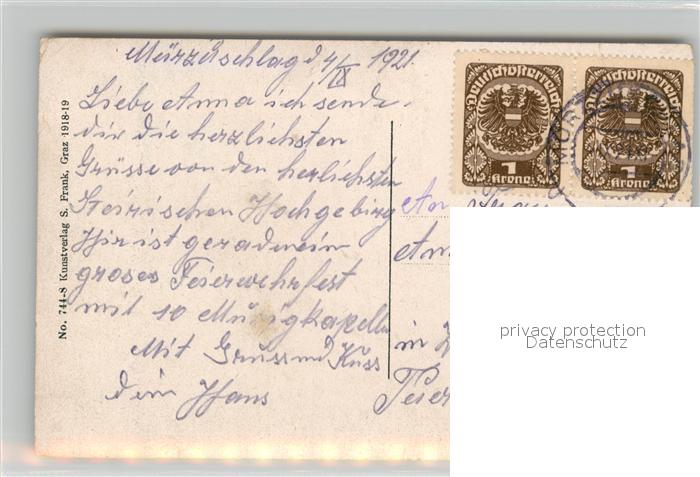 Mürzzuschlag d. 4/IX 1921.
Liebe Anna ich sende
dir die herzlichsten
Grüsse von den herlichsten
Steirischen Hochgebirg
Hir ist gerade ein
groses Feierwehrfest
mit 10 Musigkapellen
Mit Gruss und Kuss
dein Hans
No. 744-8 Kunstverlag S. Frank, Graz 1918-19
Deutschösterreich
1
Krone
Deutschösterreich
1
Krone
An
in
privacy protection
Datenschutz